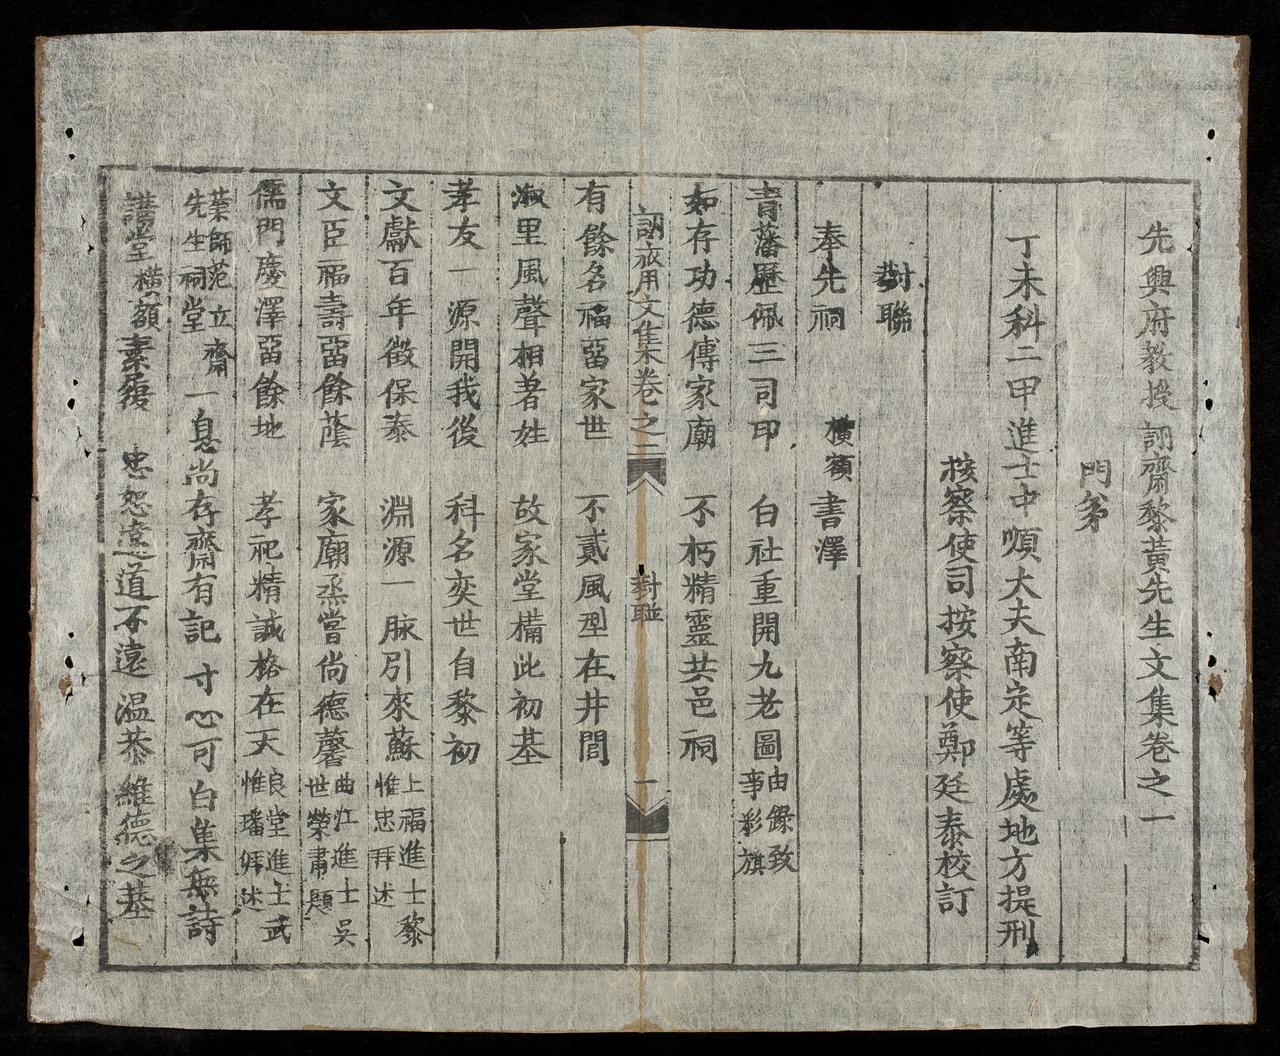 先興府教授訒齋黎黃先生文集卷之一
門弟
丁未科二甲進士中順大夫南定等處地方提刑
按察使司按察使鄭廷泰校訂
對聯
奉先祠 橫額 書澤
青藩歷佩三司印 白社重開九老圖 由錄致事彩旗
如存功德傳家廟 不朽精靈共邑祠
訒齋用文集卷之二 對聯 一
有餘名福畱家世 不貳風型在井閭
淑里風聲相著姓 故家堂構此初基
孝友一源開我後 科名奕世自黎初
文獻百年徵保泰 淵源一脉引來蘇 上福進士黎惟忠拜述
文臣福壽畱餘蔭 家廟烝嘗尚德馨 曲江進士吳世榮肅題
儒門慶澤畱餘地 孝祀精誠格在天 良堂進士武惟璠拜述
葉師范立齋先生祠堂 一息尚存齋有記 寸心可白集無詩
講堂 橫額 素履 忠恕違道不遠 溫恭維德之基